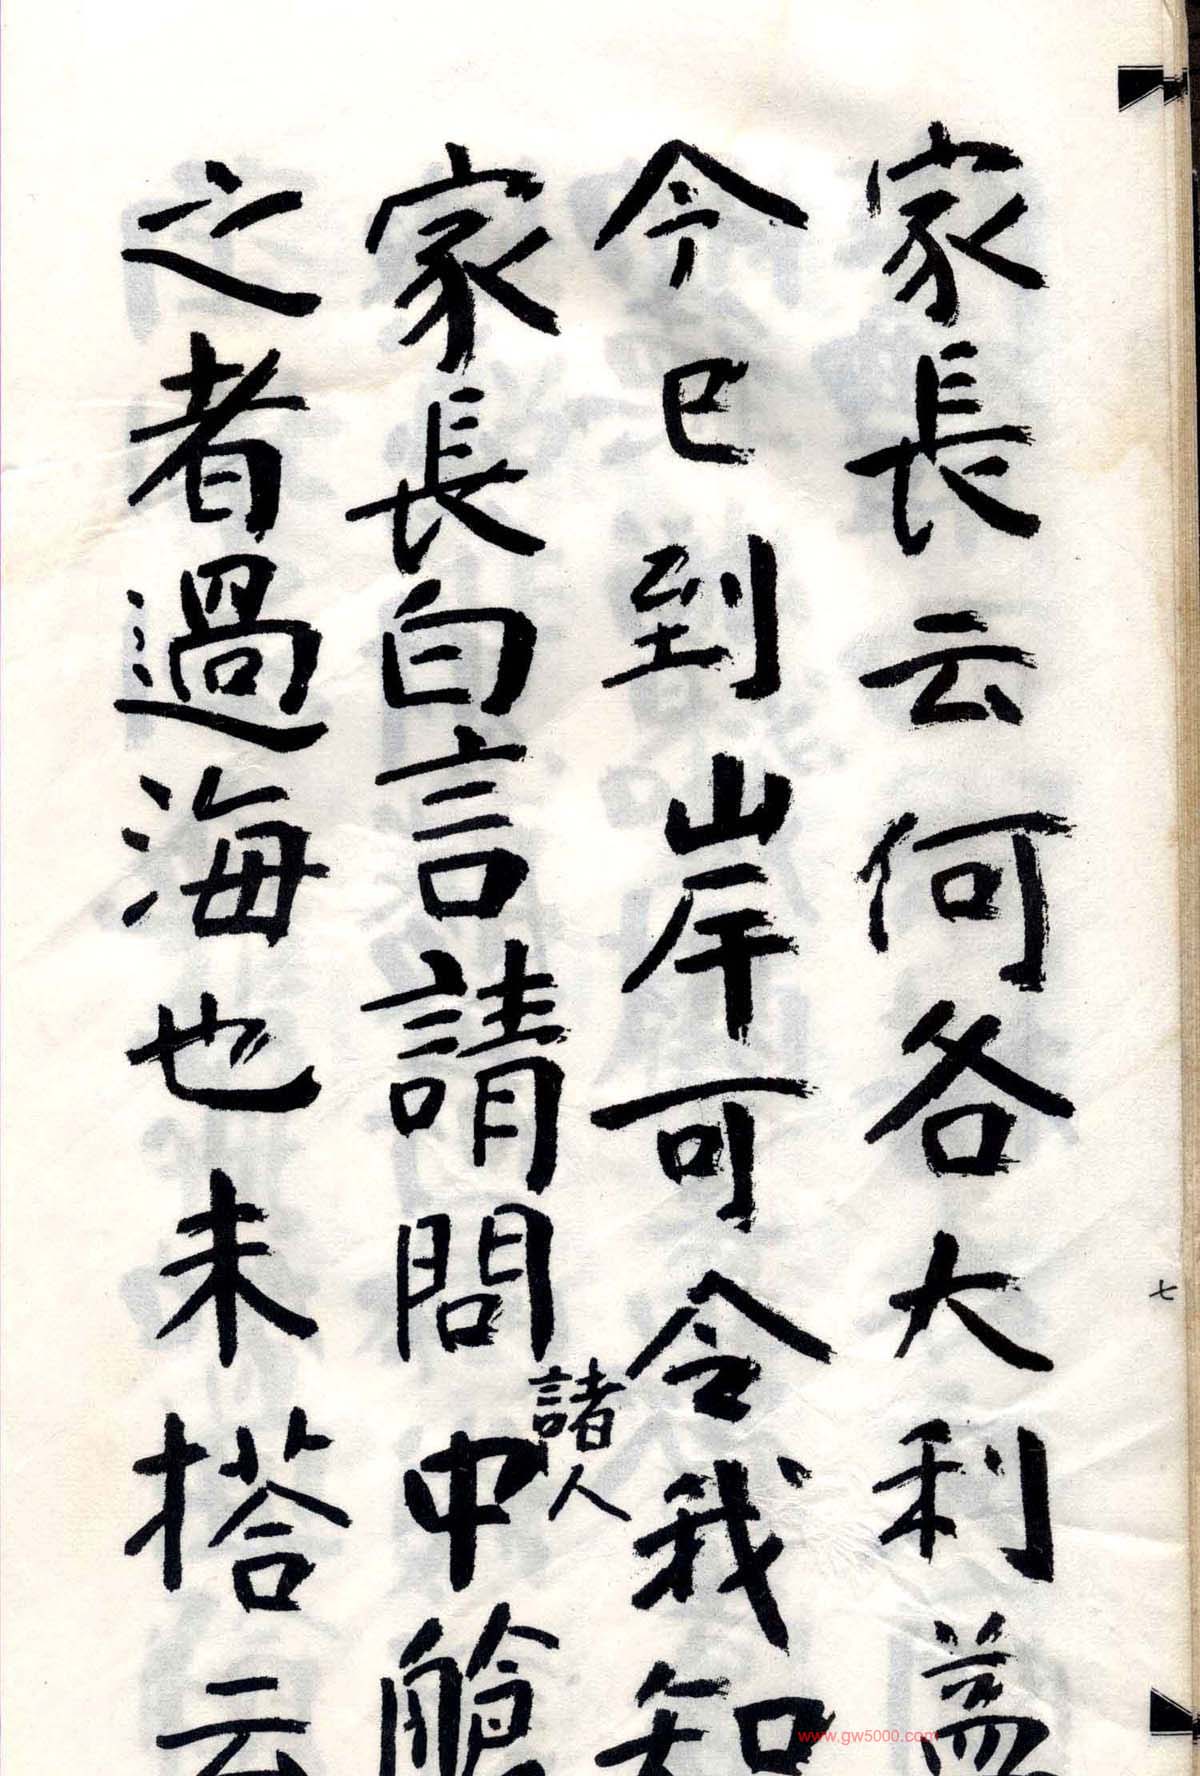 家長云何各大利益
今已到岸可令我知
家長白言請問諸人中艙
之者過海也未搭云
七
www.gw5000.com